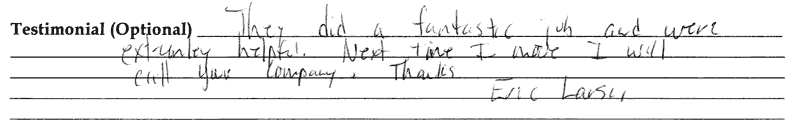 Testimonial (Optional) They did a fantastic job and were
extremley helpful. Next time I move I will
call your company. Thanks
Eric Larsen